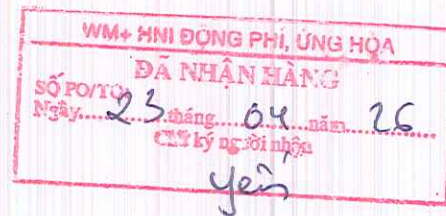 WM+ HNI ĐỘNG PHÍ, ỨNG HÒA
ĐÃ NHẬN HÀNG
SỐ PO/TO:
Ngày.....23.tháng....04....năm....26......
Chữ ký người nhận
yến